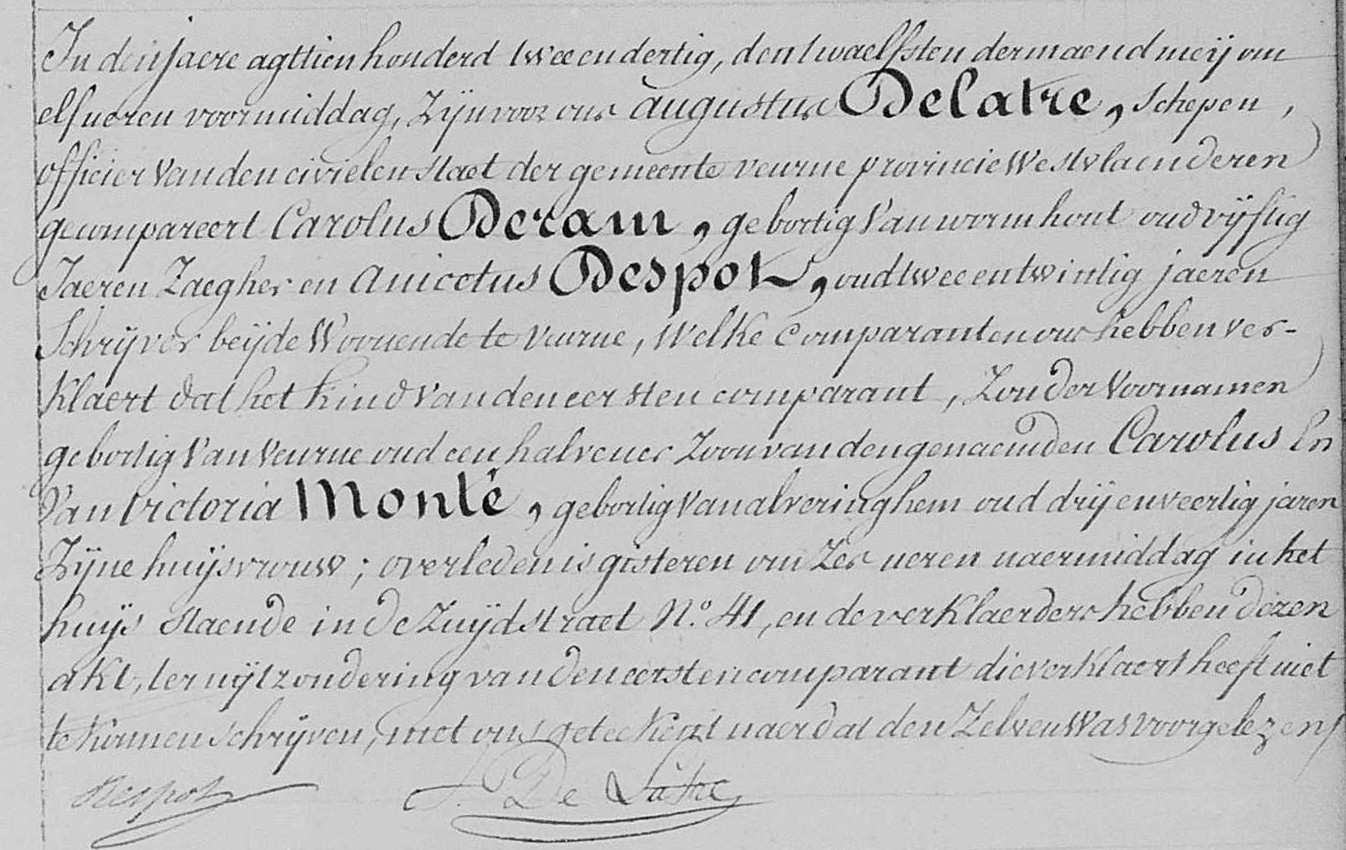 In den jaere agttien honderd twee en dertig, den twaelfsten der maend meij om
elf ueren voormiddag, Zijn voor ons augustus Delatre, Schepen,
officier Van den civielen staet der gemeente veurne provincie Westvlaenderen
gecompareert Carolus Deram, gebortig Van wormhout oud vijftig
Jaeren Zaegher en Anicetus Despot, oud twee en twintig jaeren
Schrijver beijde Woonende te veurne, Welke Comparanten ons hebben ver-
Klaert dat het Kind Van den eersten comparant, Zonder Voornamen
gebortig Van Veurne oud een half uer Zoon van den genaemden Carolus En
Van Victoria Monté, gebortig Van alveringhem oud drij en veertig jaren
Zijne huijsvrouw; overleden is gisteren om Zes ueren naermiddag in het
huijs staende in de Zuijdstraet N.o 41, en de verklaerders hebben dezen
akt, ter uijtzondering van den eersten comparant die verklaert heeft niet
te konnen schrijven, met ons geteekent naer dat den Zelven Was voorgelezen
Despot De Latre